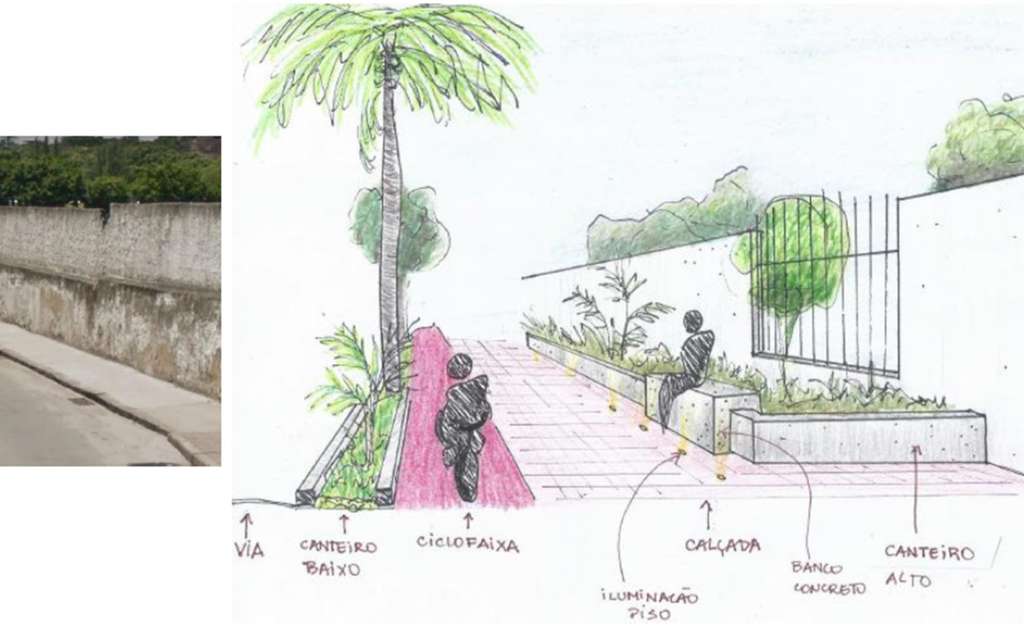 VIA
CANTEIRO
BAIXO
CICLOFAIXA
ILUMINAÇÃO
PISO
CALÇADA
BANCO
CONCRETO
CANTEIRO
ALTO